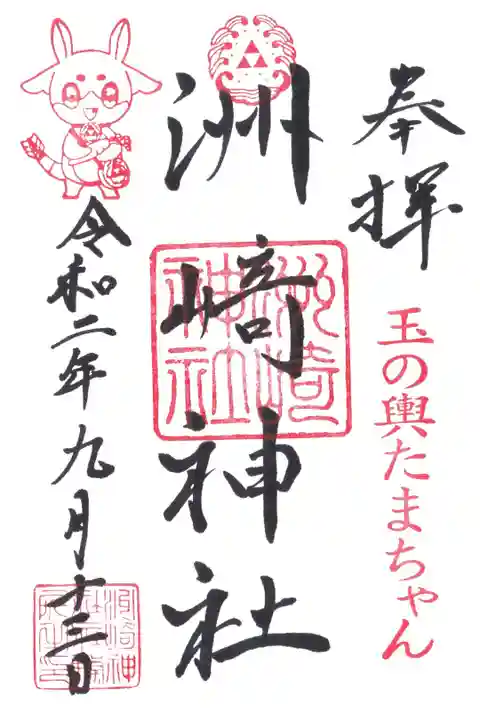 奉拝
玉の輿たまちゃん
洲崎神社
洲崎神社
令和二年九月十三日